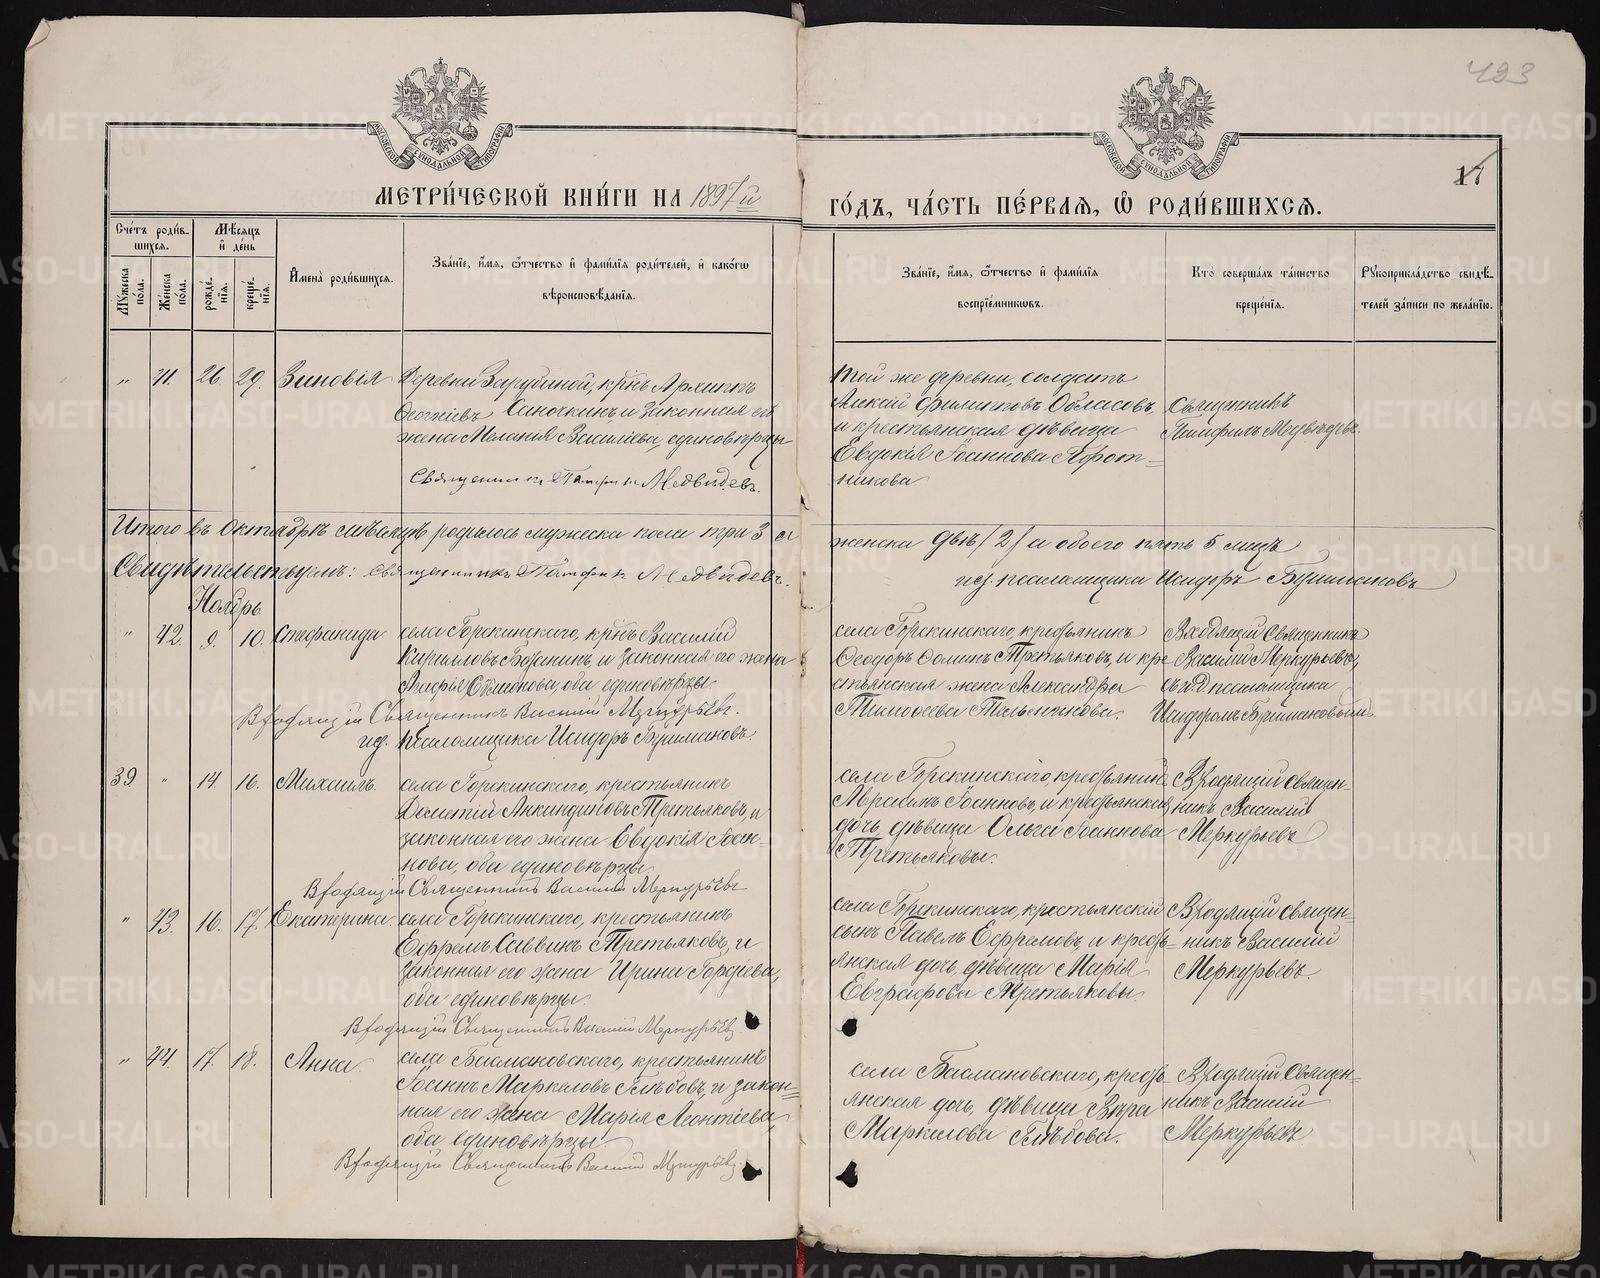 423
17
МОСКОВСКОЙ СѴНОДАЛЬНОЙ ТИПОГРАФІИ
МОСКОВСКОЙ СѴНОДАЛЬНОЙ ТИПОГРАФІИ
МЕТРИ́ЧЕСКОЙ КНИ́ГИ НА 1897й
ГО́ДЪ, ЧА́СТЬ ПЕ́РВАЯ, Ѽ РОДИ́ВШИХСЯ.
Сче́тъ роди́в-
шихся.
Мѣ́сяцъ
и҆ де́нь
Му́жеска
по́ла.
Же́нска
по́ла.
рожде́-
нїя.
креще́-
нїя.
И҆мена̀ роди́вшихся.
Зва́нїе, и҆́мя, ѻ҆́тчество и҆ фами́лїя роди́телей, и҆ како́гѡ
вѣроисповѣ́данїя.
Зва́нїе, и҆́мя, ѻ҆́тчество и҆ фами́лїя
воспрїе́мникѡвъ.
Кто̀ соверша́лъ та́инство
креще́нїя.
Рꙋкоприкла́дство свидѣ́-
телей за́писи по жела́нїю.
„ 41. 26. 29. Зиновія Деревни Зарубиной, крнъ Архиппъ
Георгіевъ Саночкинъ, и законная его
жена Меланія Василіева, единовѣрцы
Священникъ Памфилъ Медвѣдевъ.
Той же деревни, солдатъ
Алексій Филипповъ Обласовъ,
и крестьянская дѣвица
Евдокія Іоаннова Плот-
никова
Священникъ
Памфилъ Медвѣдевъ.
Итого въ Октябрѣ мѣсяцѣ родилось мужеска пола три 3 и
женска двѣ /2/ а обоего пять 5 лицъ
Свидѣтельствуемъ: священникъ Памфилъ Медвѣдевъ.
ид. псаломщика Исидоръ Бушмаковъ
Ноябрь
„ 42. 9. 10. Стефанида села Горскинскаго, крнъ Василій
Кирилловъ Боженинъ, и законная его жена
Агафія Симонова, оба единовѣрцы.
Входящій Священникъ Василій Меркурьевъ.
ид. псаломщика Исидоръ Бушмаковъ.
села Горскинскаго, крестьянинъ
Ѳеодоръ Ѳоминъ Третьяковъ, и кре
стьянская жена Александра
Тимоѳеева Тельнокова.
Входящій Священникъ
Василій Меркурьевъ,
съ ид псаломщика
Исидоромъ Бушмаковымъ
39 „ 14. 16. Михаилъ. села Горскинскаго, крестьянинъ
Дометій Анкиндиновъ Третьяковъ, и
законная его жена Евдокія Іоан-
нова, оба единовѣрцы
Входящій Священникъ Василій Меркурьевъ
села Горскинскаго, крестьянинъ
Авраамъ Іоанновъ, и крестьянская
дочь, дѣвица Ольга Іоаннова
Третьяковы.
Входящій Священ-
никъ Василій
Меркурьевъ
„ 43. 16. 17. Екатерина. села Горскинскаго, крестьянинъ
Ефремъ Саввинъ Третьяковъ, и
законная его жена Ирина Гордіева,
оба единовѣрцы.
Входящій Священникъ Василій Меркурьевъ
села Горскинскаго, крестьянскій
сынъ Павелъ Ефремовъ, и кресть-
янская дочь дѣвица Марія
Евграфова Третьяковы.
Входящій Священ-
никъ Василій
Меркурьевъ.
„ 44. 17. 18. Анна. села Басмановскаго, крестьянинъ
Іоаннъ Маркеловъ Глѣбовъ, и закон-
ная его жена Марія Леонтіева,
оба единовѣрцы.
Входящій Священникъ Василій Меркурьевъ.
села Басмановскаго, кресть-
янская дочь, дѣвица Вѣра
Маркелова Глѣбова.
Входящій Священ-
никъ Василій
Меркурьевъ.
METRIKI.GASO-URAL.RU